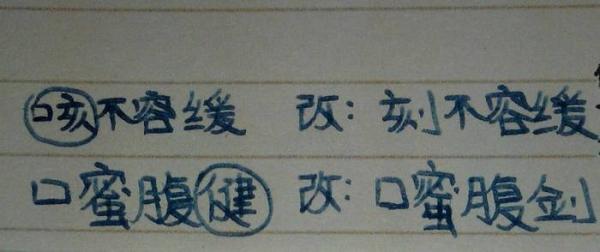 咳不容缓 改：刻不容缓
口蜜腹健 改：口蜜腹剑